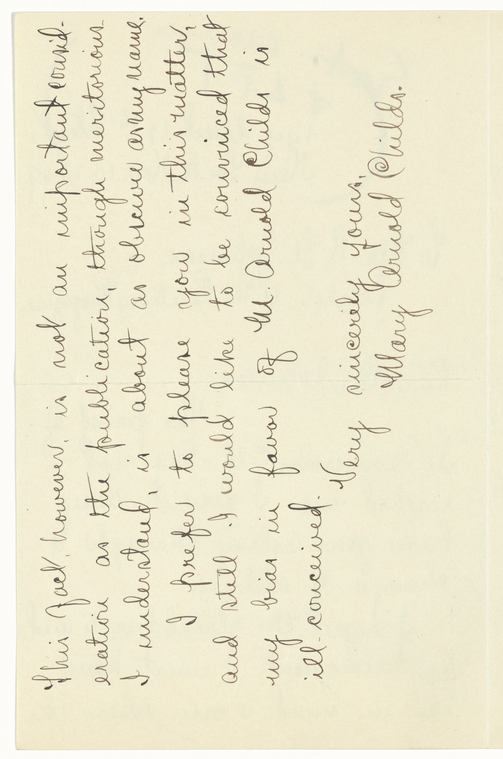 This fact, however, is not an important consid-
eration as the publication, though meritorious
I understand, is about as obscure as my name.
I prefer to please you in this matter,
and still I would like to be convinced that
my bias in favor of M. Arnold Childs is
ill-conceived.
Very sincerely yours,
Mary Arnold Childs.